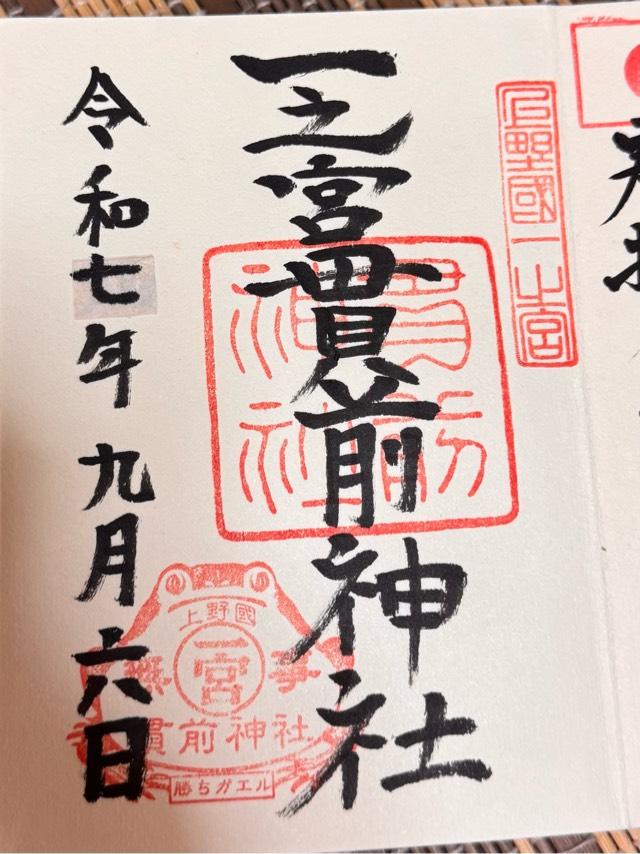 上野國一之宮
一之宮貫前神社
貫前
神社
令和七年九月六日
上野國
一宮
無事
貫前神社
勝ちガエル